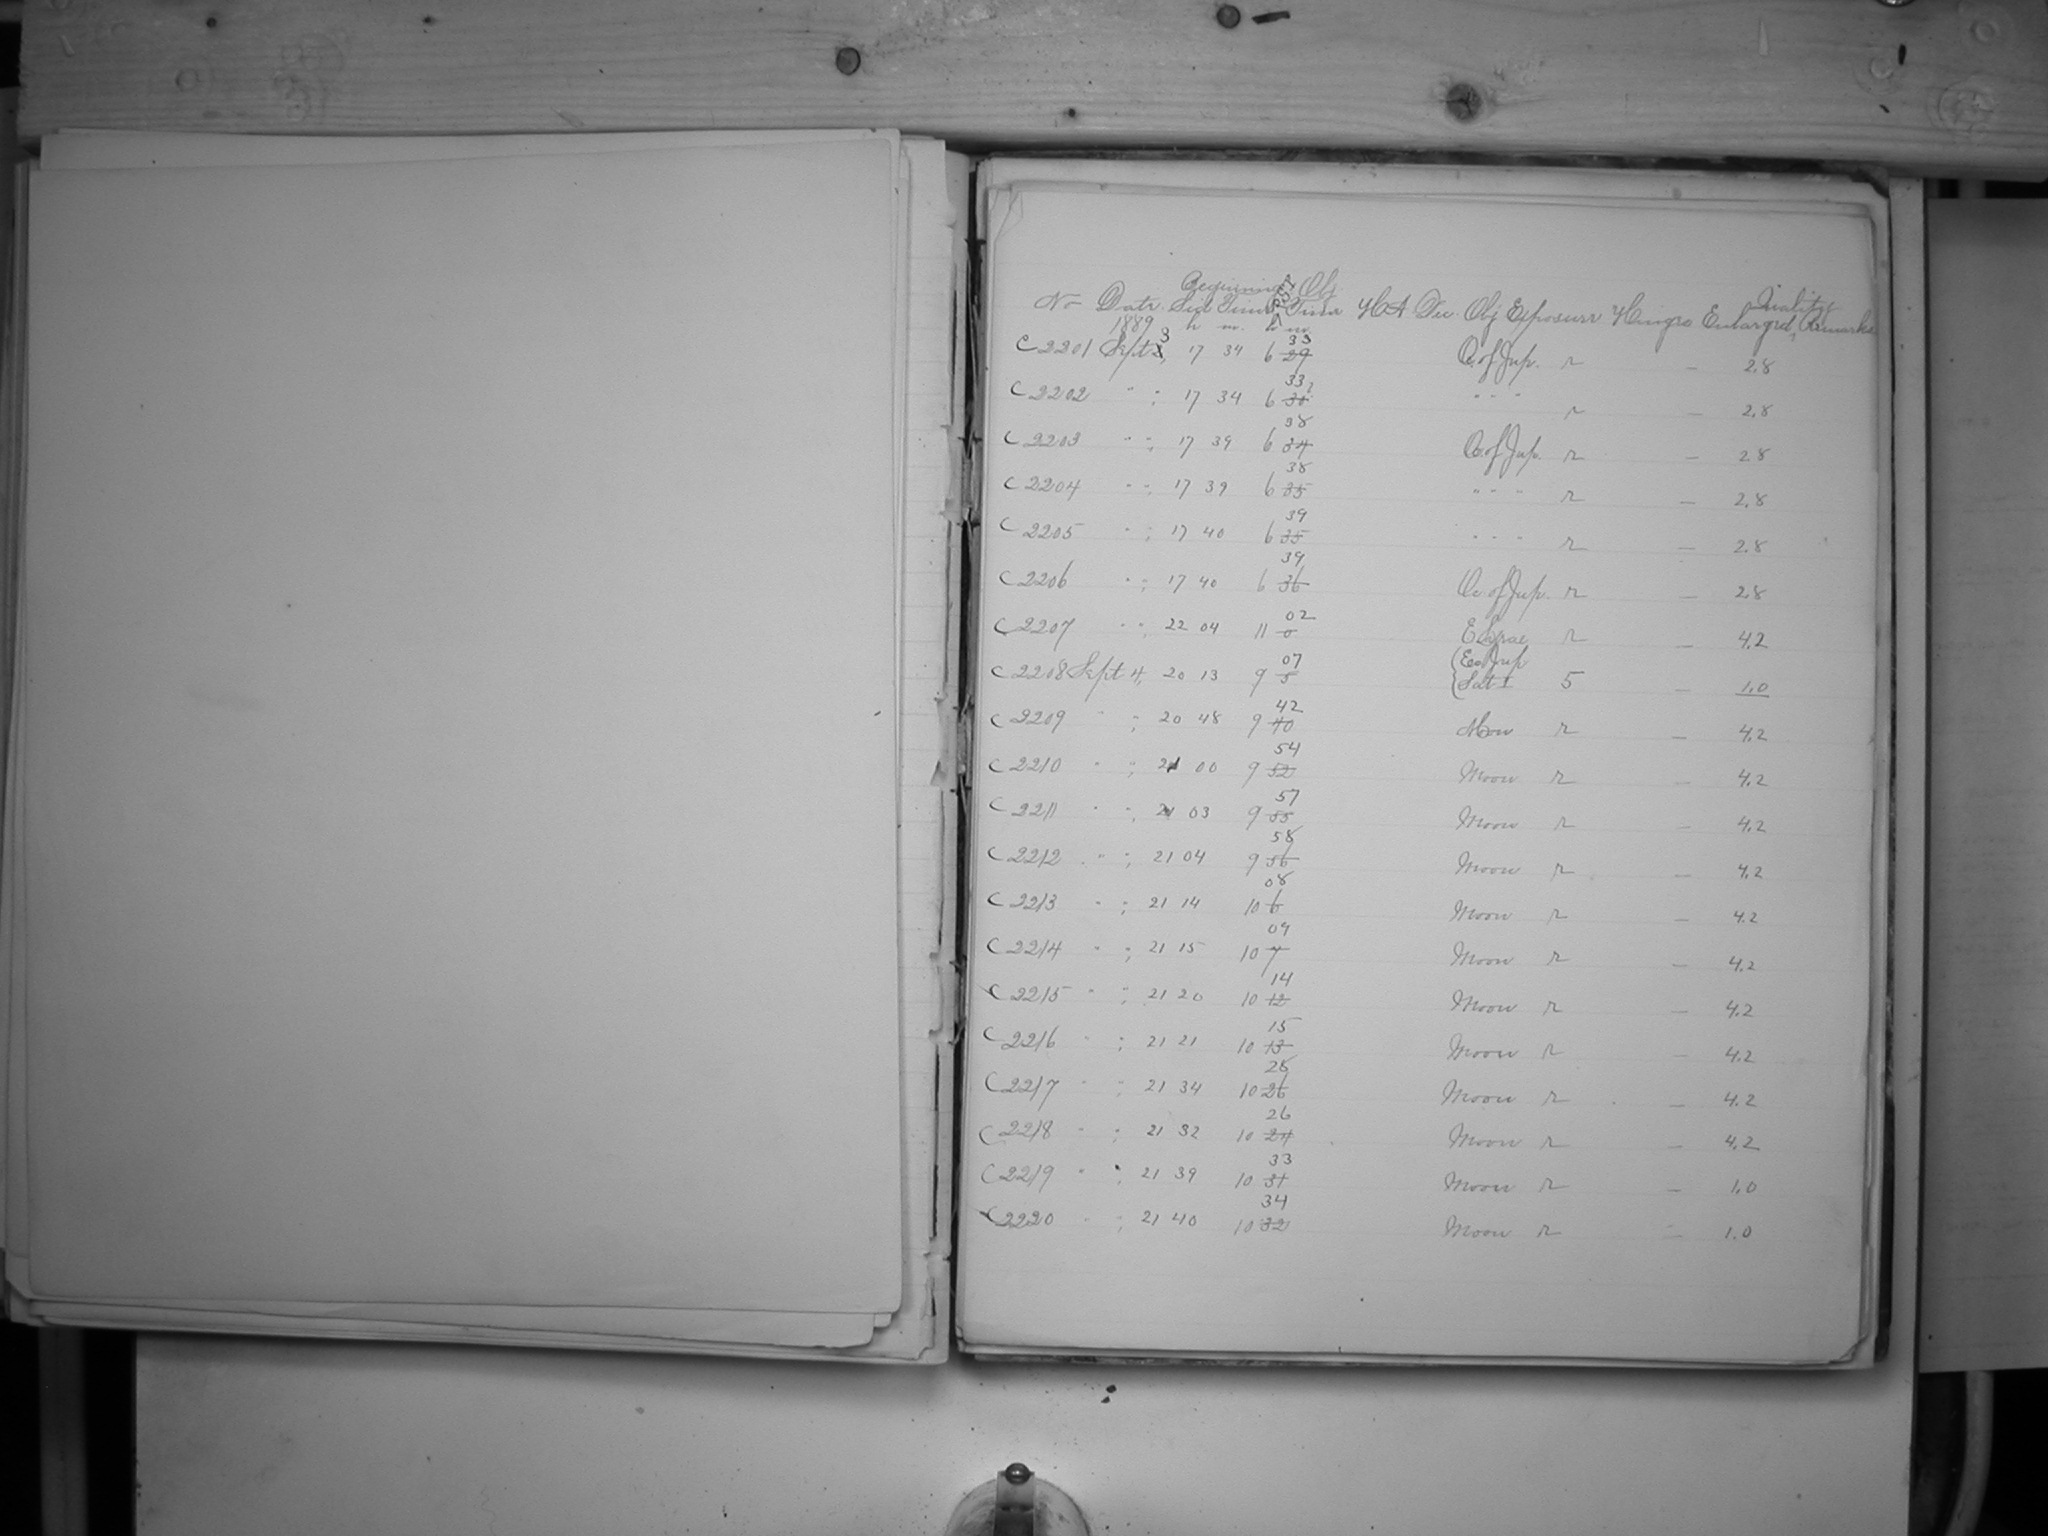 Beginning Obj.
No Date. Sid Time Time HA Dec. Obj Exposure Hinge Enlarged, Quality Remarks
1889 h m. h m
33
C 2201 Sept 3, 17 34 6 29 Oc. of Jup. r — 2.8
33
C 2202 " " ; 17 34 6 30 " " " r — 2.8
38
C 2203 " " ; 17 39 6 34 Oc. of Jup. r — 2.8
38
C 2204 " " ; 17 39 6 35 " " " r — 2.8
39
C 2205 " ; 17 40 6 35 " " " r — 2.8
39
C 2206 " ; 17 40 6 36 Oc. of Jup. r — 2.8
02
C 2207 " " ; 22 04 11 0 r — 4.2
07 {Ec. Jup
C 2208 Sept 4, 20 13 9 5 {Sat I 5 — 1.0
42
C 2209 " ; 20 48 9 40 Moon r — 4.2
54
C 2210 " " ; 21 00 9 52 Moon r — 4.2
57
C 2211 " " ; 21 03 9 55 Moon r — 4.2
58
C 2212 " " ; 21 04 9 56 Moon r — 4.2
08
C 2213 " " ; 21 14 10 6 Moon r — 4.2
09
C 2214 " " ; 21 15 10 7 Moon r — 4.2
14
C 2215 " " ; 21 20 10 12 Moon r — 4.2
15
C 2216 " ; 21 21 10 13 Moon r — 4.2
28
C 2217 " " ; 21 34 10 26 Moon r — 4.2
26
C 2218 " " ; 21 32 10 24 Moon r — 4.2
33
C 2219 " " ; 21 39 10 31 Moon r — 1.0
34
C 2220 " " ; 21 40 10 32 Moon r — 1.0